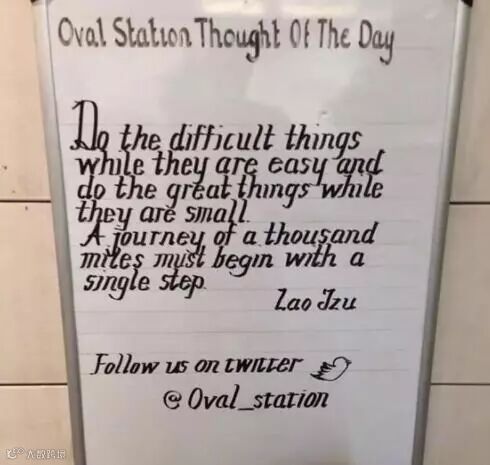 Oval Station Thought Of The Day
Do the difficult things
while they are easy and
do the great things while
they are small.
A journey of a thousand
miles must begin with a
single step.
Lao Tzu
Follow us on twitter
@ Oval_station
大数跨境